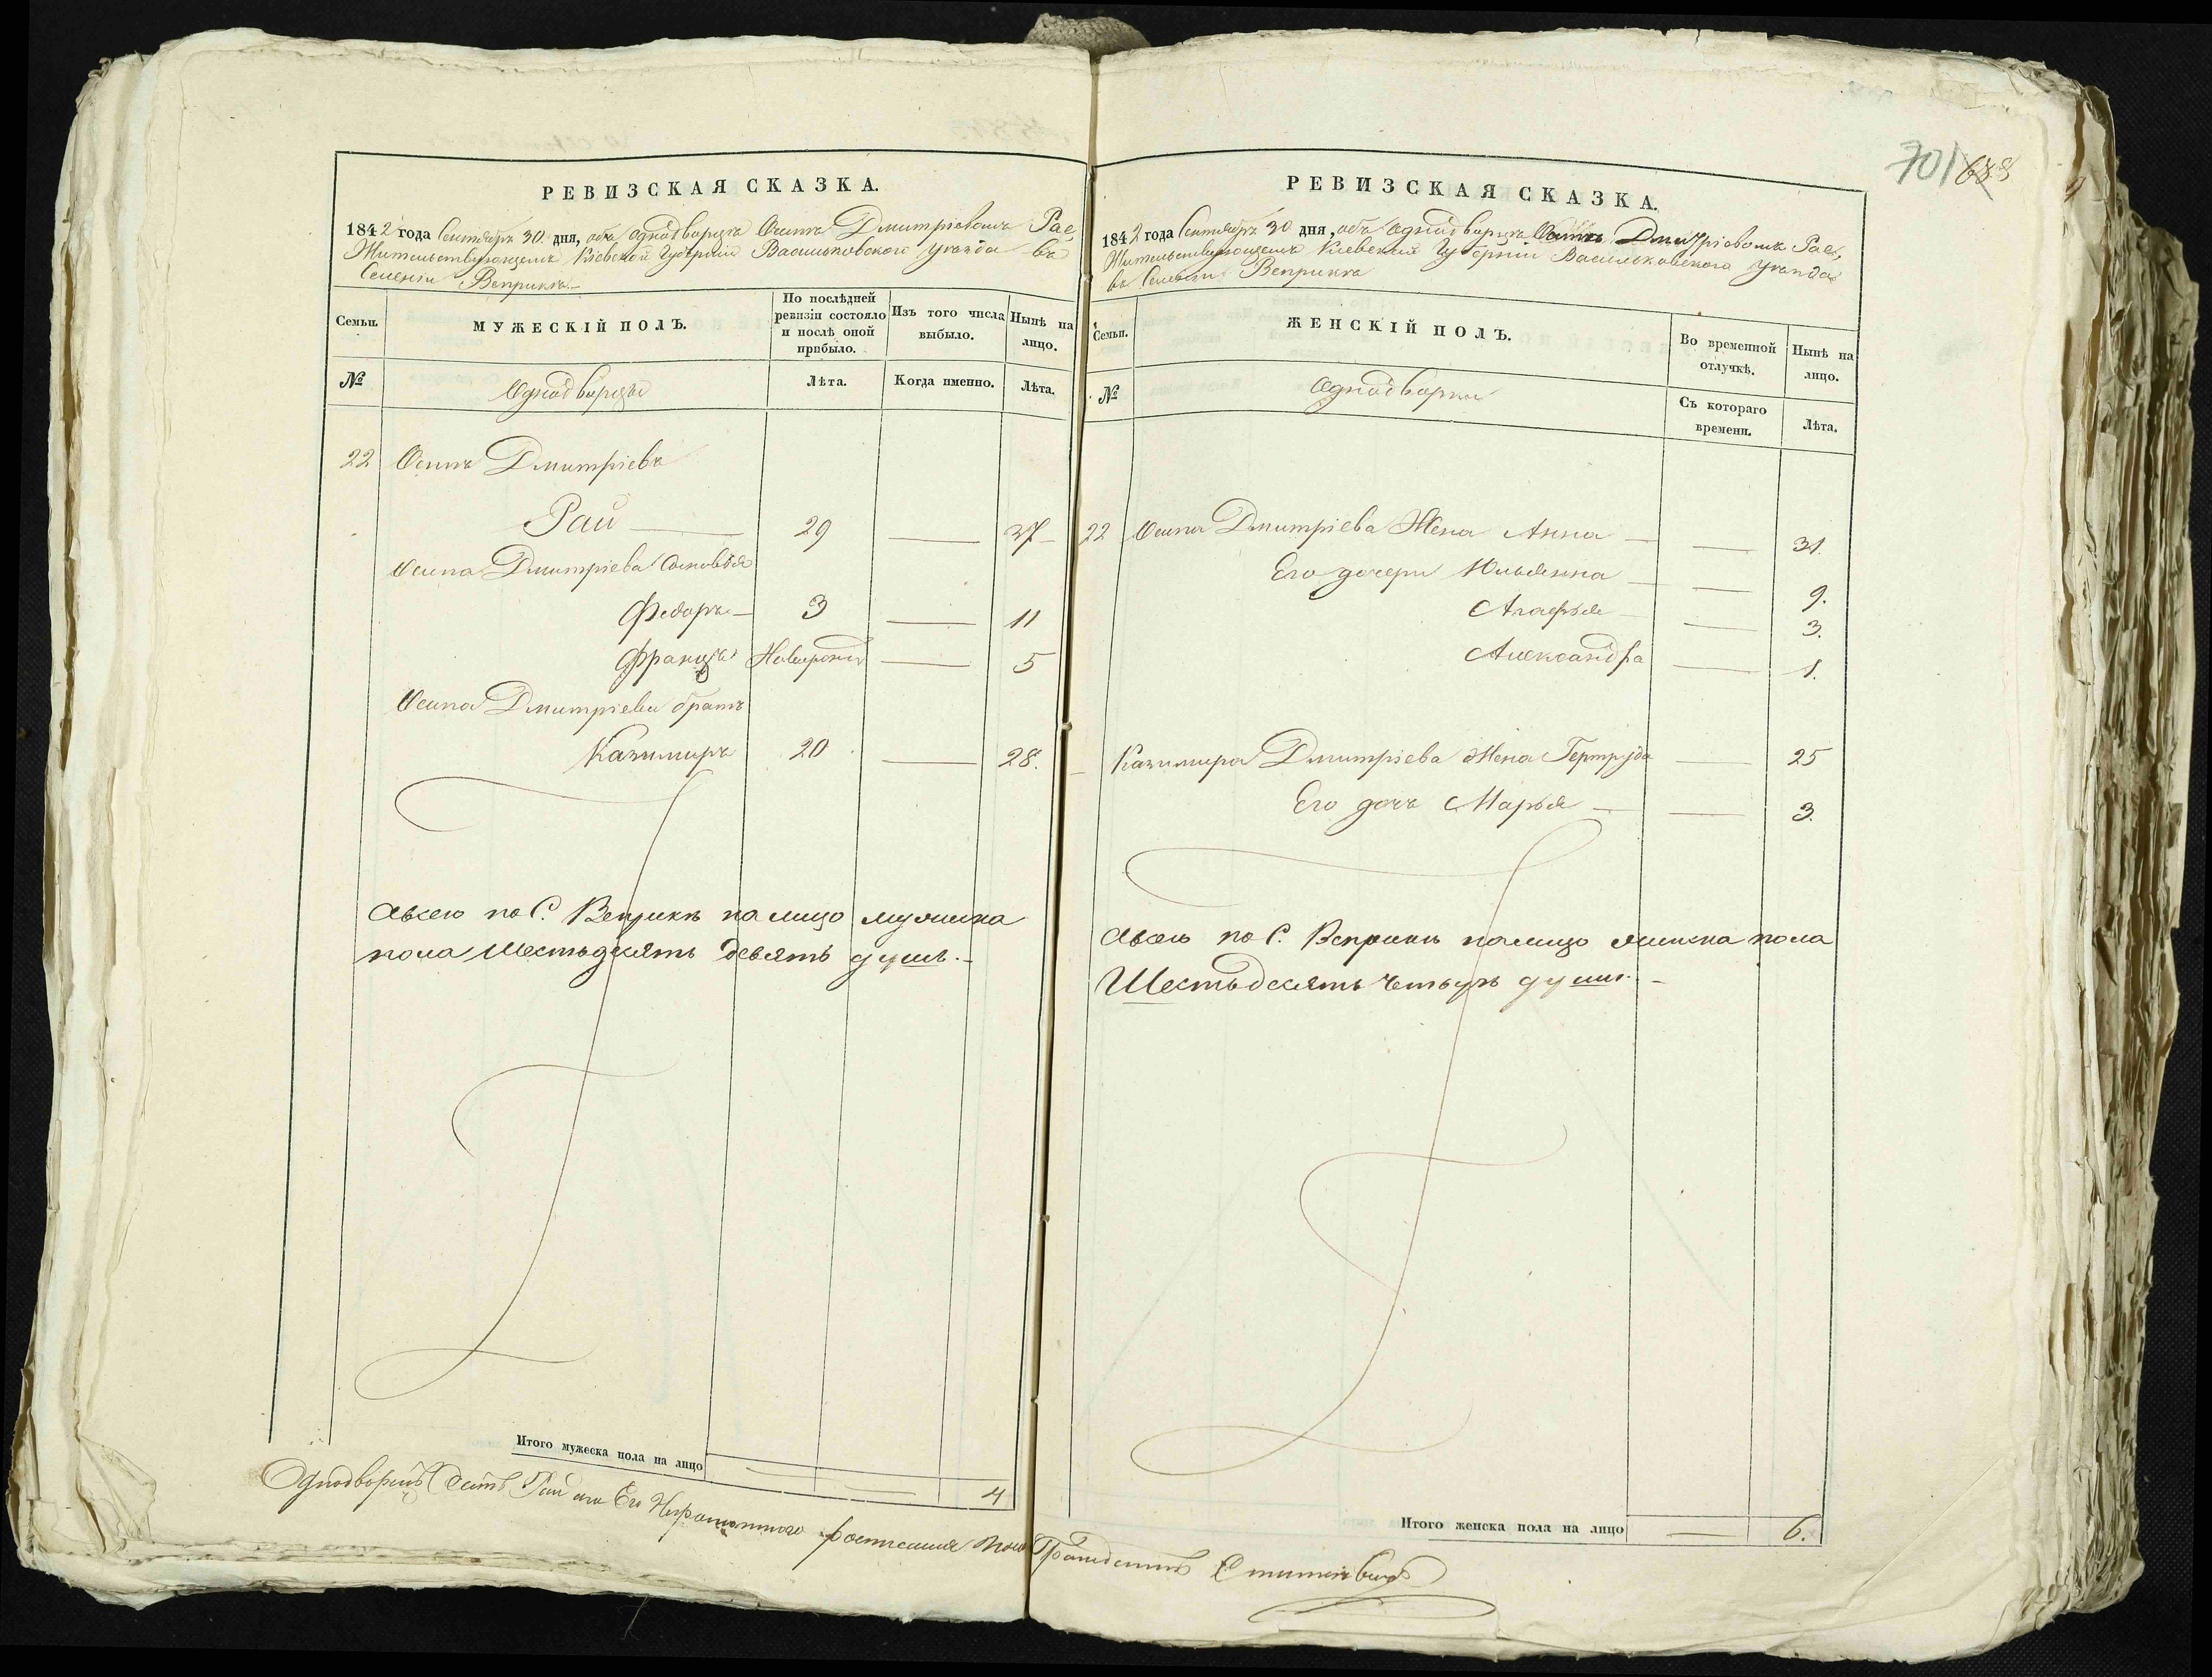 РЕВИЗСКАЯ СКАЗКА.
1842 года Сентября 30 дня, объ однодворцѣ Осипѣ Дмитріевомъ Раѣ
Жительствующемъ Кіевской Губерніи Васильковскаго уѣзда въ
Селеніи Веприкѣ
Семьи.
МУЖЕСКІЙ ПОЛЪ.
По послѣдней ревизіи состояло и послѣ оной прибыло.
Изъ того числа выбыло.
Нынѣ на лицо.
№
Однодворцы
Лѣта.
Когда именно.
Лѣта.
22 Осипъ Дмитріевъ
Рай — 29 — 37
Осипа Дмитріева Сыновья
Федоръ — 3 — 11
Францъ Новорожд — 5
Осипа Дмитріева братъ
Казимиръ 20 — 28.
Авсего по С. Веприкъ налицо мужеска
пола Шестьдесять девять душъ. —
Итого мужеска пола на лицо — — 4
РЕВИЗСКАЯ СКАЗКА.
701 688
1842 года Сентября 30 дня, объ однодворцѣ Осипѣ Дмитріевомъ Раѣ,
Жительствующемъ Кіевской Губерніи Васильковскаго уѣзда
въ Селеніи Веприкѣ
Семьи.
ЖЕНСКІЙ ПОЛЪ.
Во временной отлучкѣ.
Нынѣ на лицо.
№
Однодворки
Съ котораго времени.
Лѣта.
22 Осипа Дмитріева Жена Анна — — 31.
Его дочери Юльянна — — 9.
Агафья — — 3.
Александра — 1.
Казимира Дмитріева Жена Гертруда — 25
Его дочь Марья — — 3.
Авсего по С. Веприкъ налицо женска пола
Шестьдесять четыръ душъ. —
Итого женска пола на лицо — 6.
Однодворецъ Осипъ Рай а за Его Неграмотного росписался